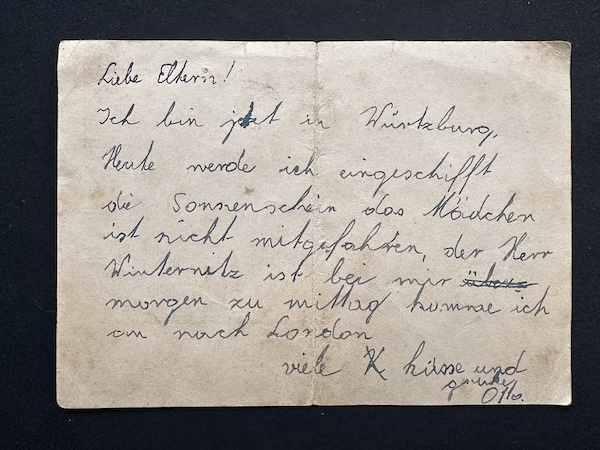 Liebe Eltern!
Ich bin jetzt in Würtzburg,
Heute werde ich eingeschifft
die Sonnenschein das Mädchen
ist nicht mitgefahren, der Herr
Winternitz ist bei mir
morgen zu mittag komme ich
an nach London
viele K küsse und
grüsse
Otto.